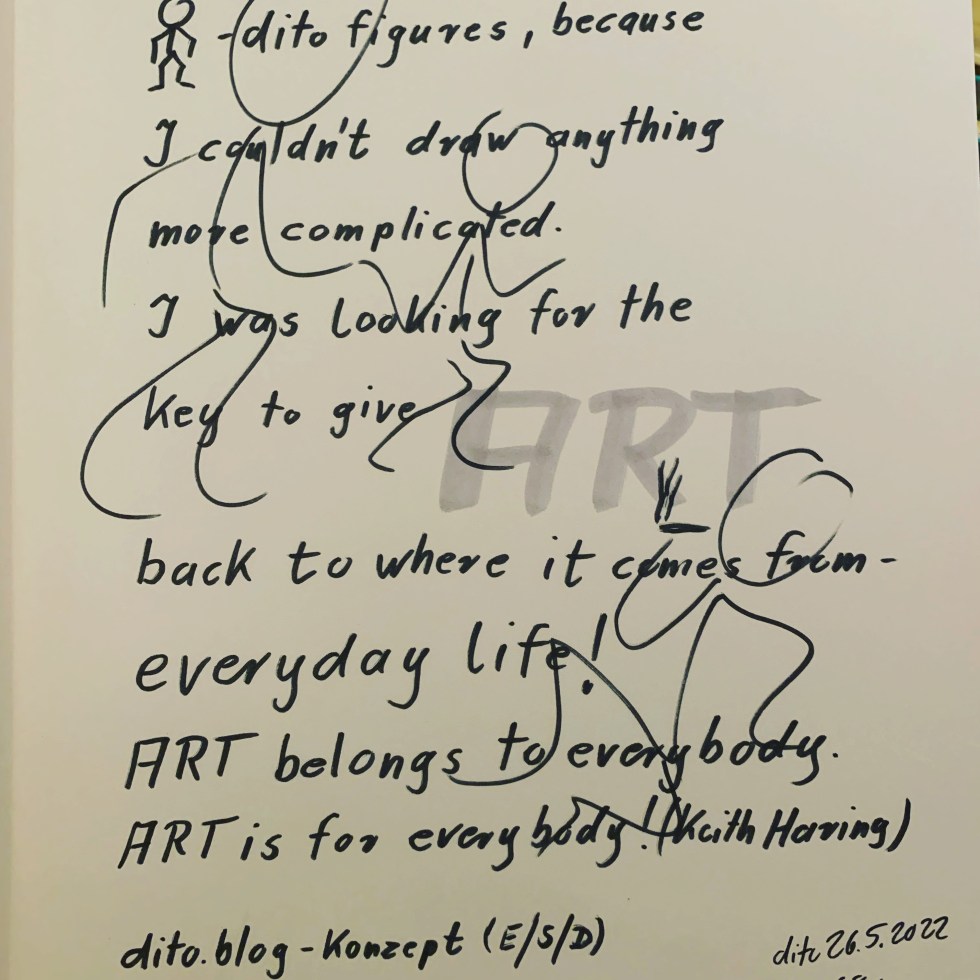 -dito figures, because
I couldn't draw anything
more complicated.
I was looking for the
key to give ART
back to where it comes from-
everyday life!
ART belongs to everybody.
ART is for everybody! (Keith Haring)
dito.blog-Konzept (E/S/D)
dito 26.5.2022